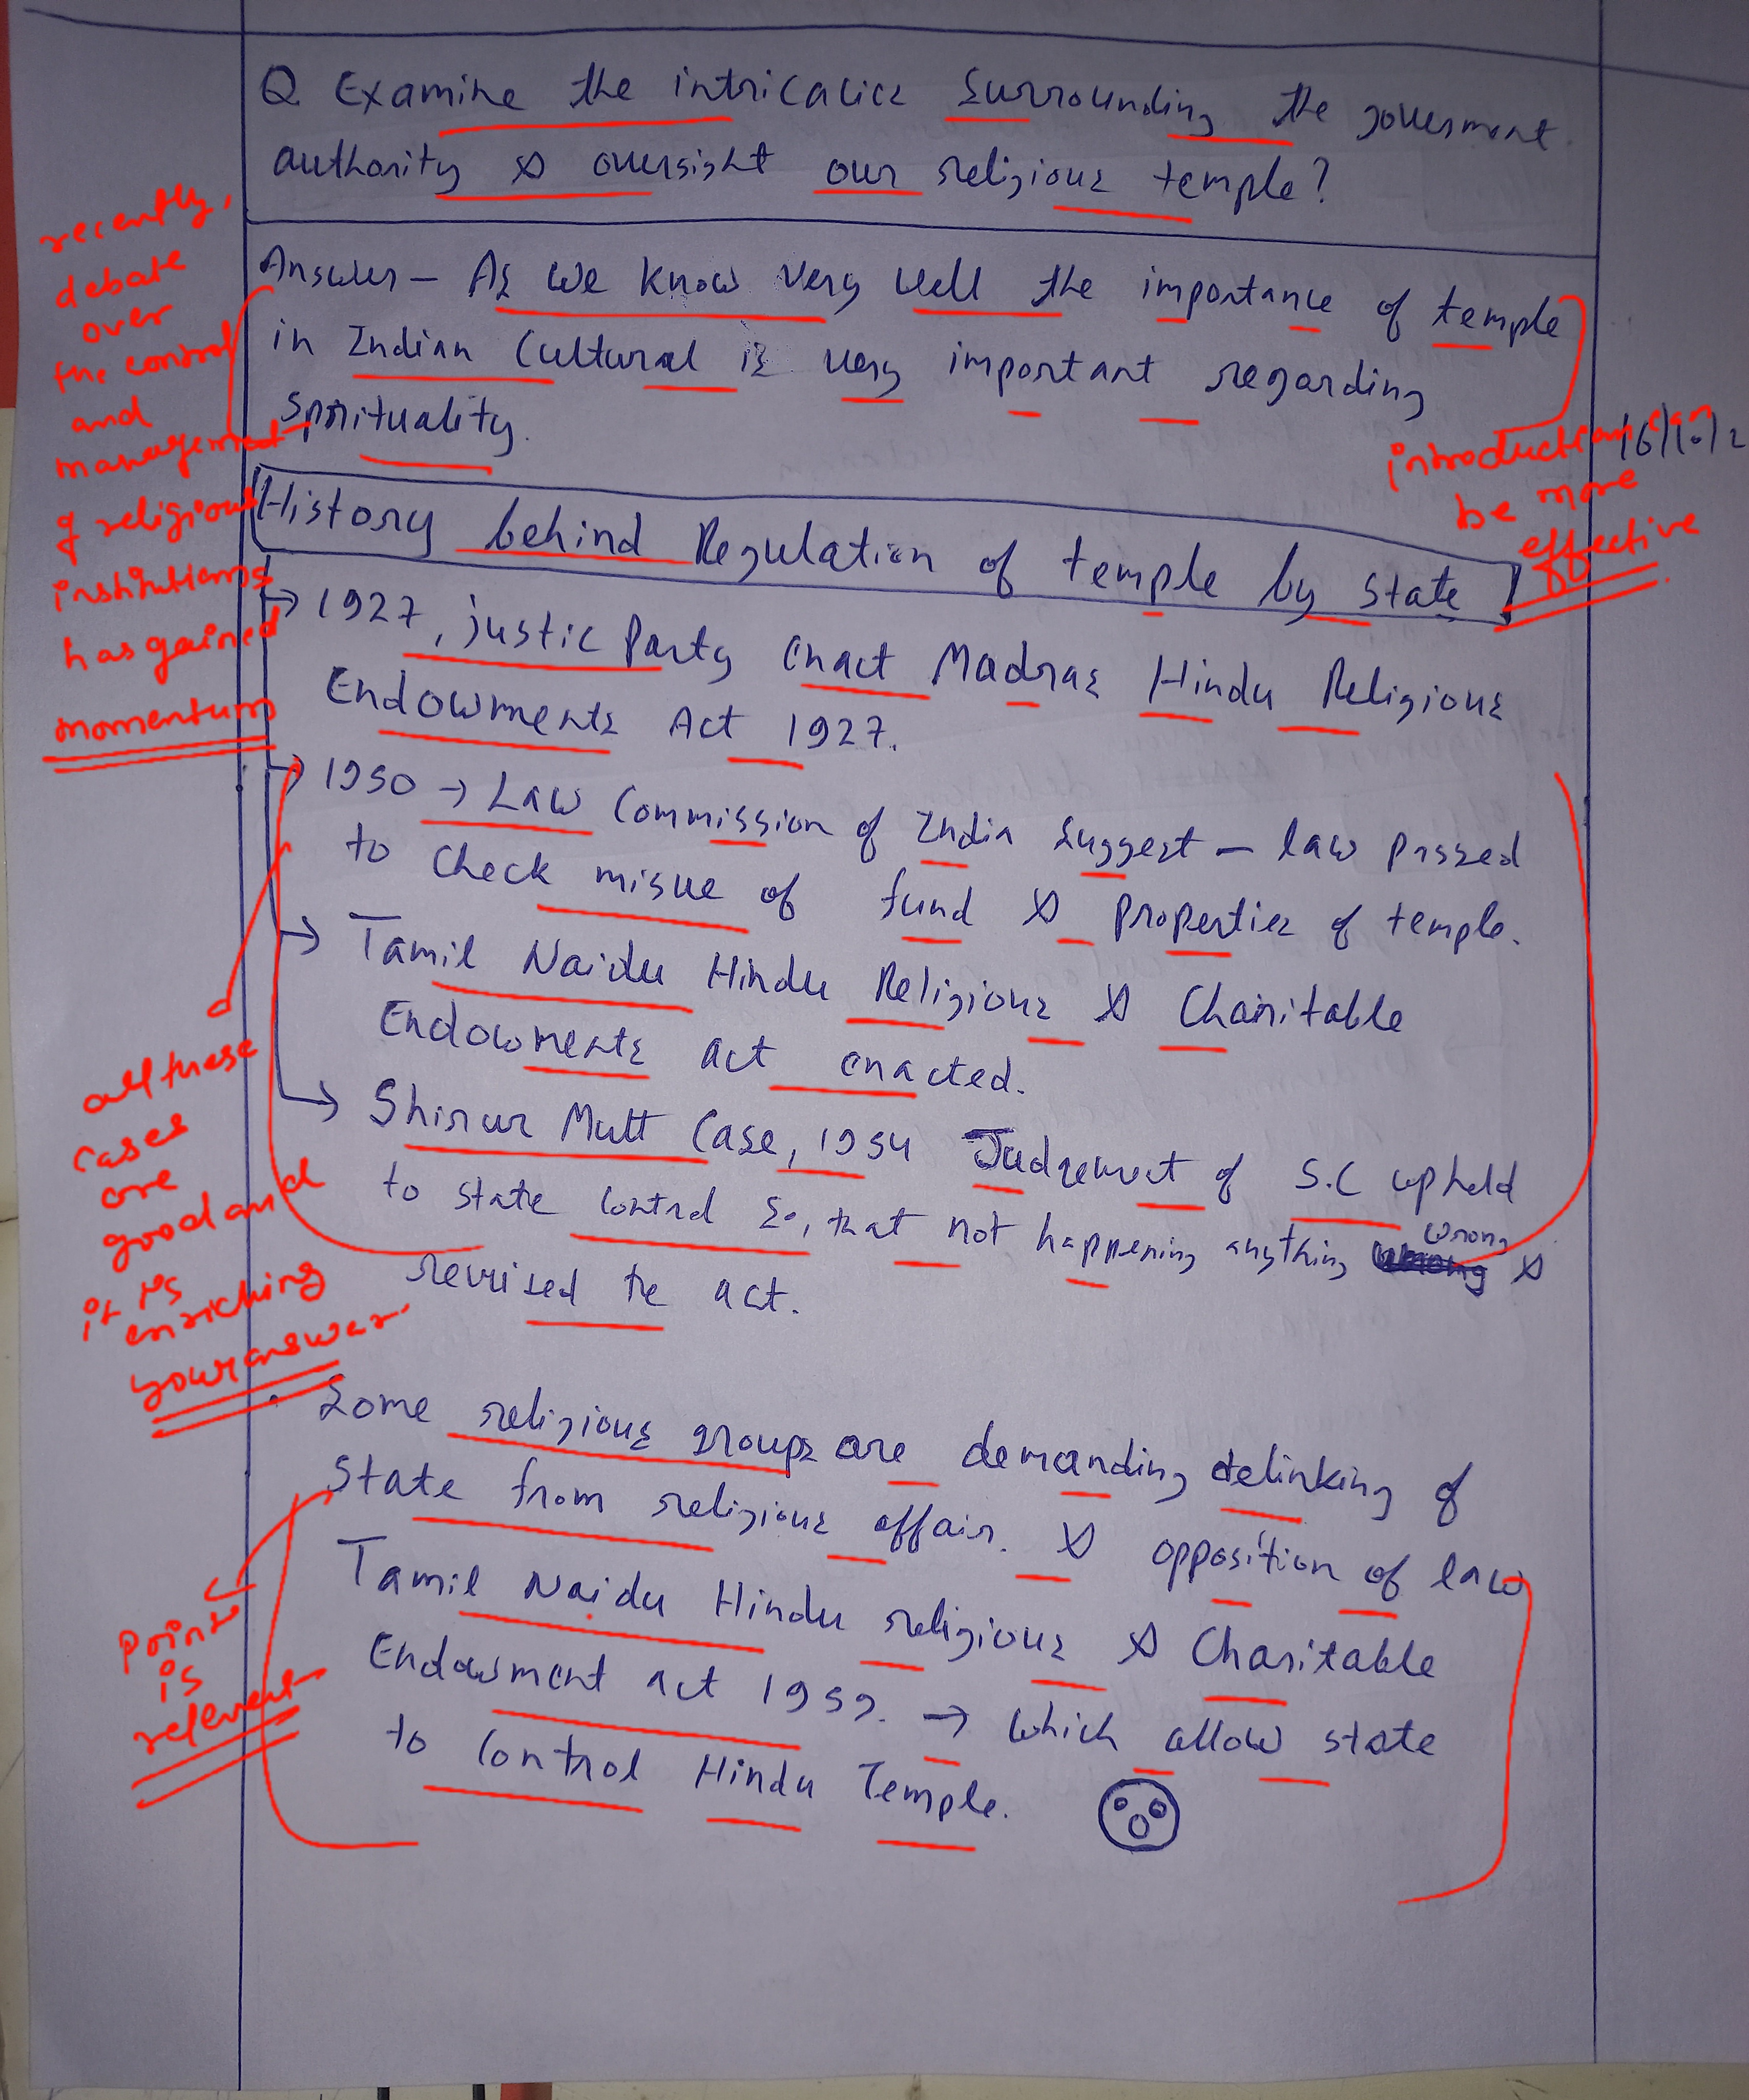 Q Examine the intricacies surrounding the government
authority & oversight over religious temple?
Answer - As we know very well the importance of temple
in Indian Cultural is very important regarding
spirituality.
recently,
debate
over
the control
and
management
of religious
institutions
has gained
momentum
introduction can
be more
effective
16/10/2
History behind Regulation of temple by state
1927, justic Party enact Madras Hindu Religious
Endowments Act 1927.
1950 → Law Commission of India suggest - law passed
to check misue of fund & properties of temple.
Tamil Naidu Hindu Religious & Charitable
Endowments act enacted.
Shirur Mutt Case, 1954 Judgement of S.C upheld
to state control so, that not happening anything wrong &
revised the act.
all these
cases
are
good and
it is
enriching
your answer.
• Some religious groups are demanding delinking of
State from religious affair. & opposition of law
Tamil Naidu Hindu religious & Charitable
Endowment act 1959. → which allow state
to control Hindu Temple.
point
is
relevent